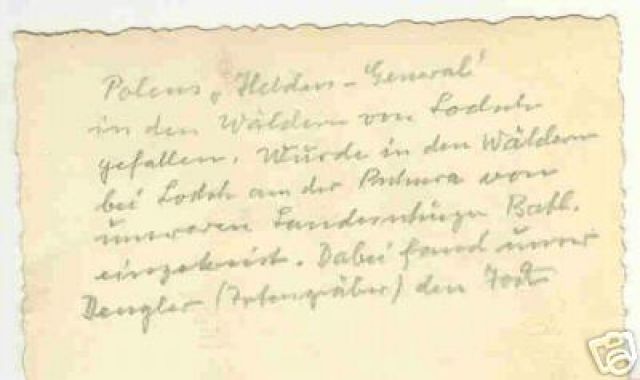 Polens „Helden-General"
in den Wäldern von Lodsch
gefallen. Wurde in den Wäldern
bei Lodsch an der Bzura von
unserem Landesschützen Batl.
eingekreist. Dabei fand unser
Dengler (Totengräber) den Tod